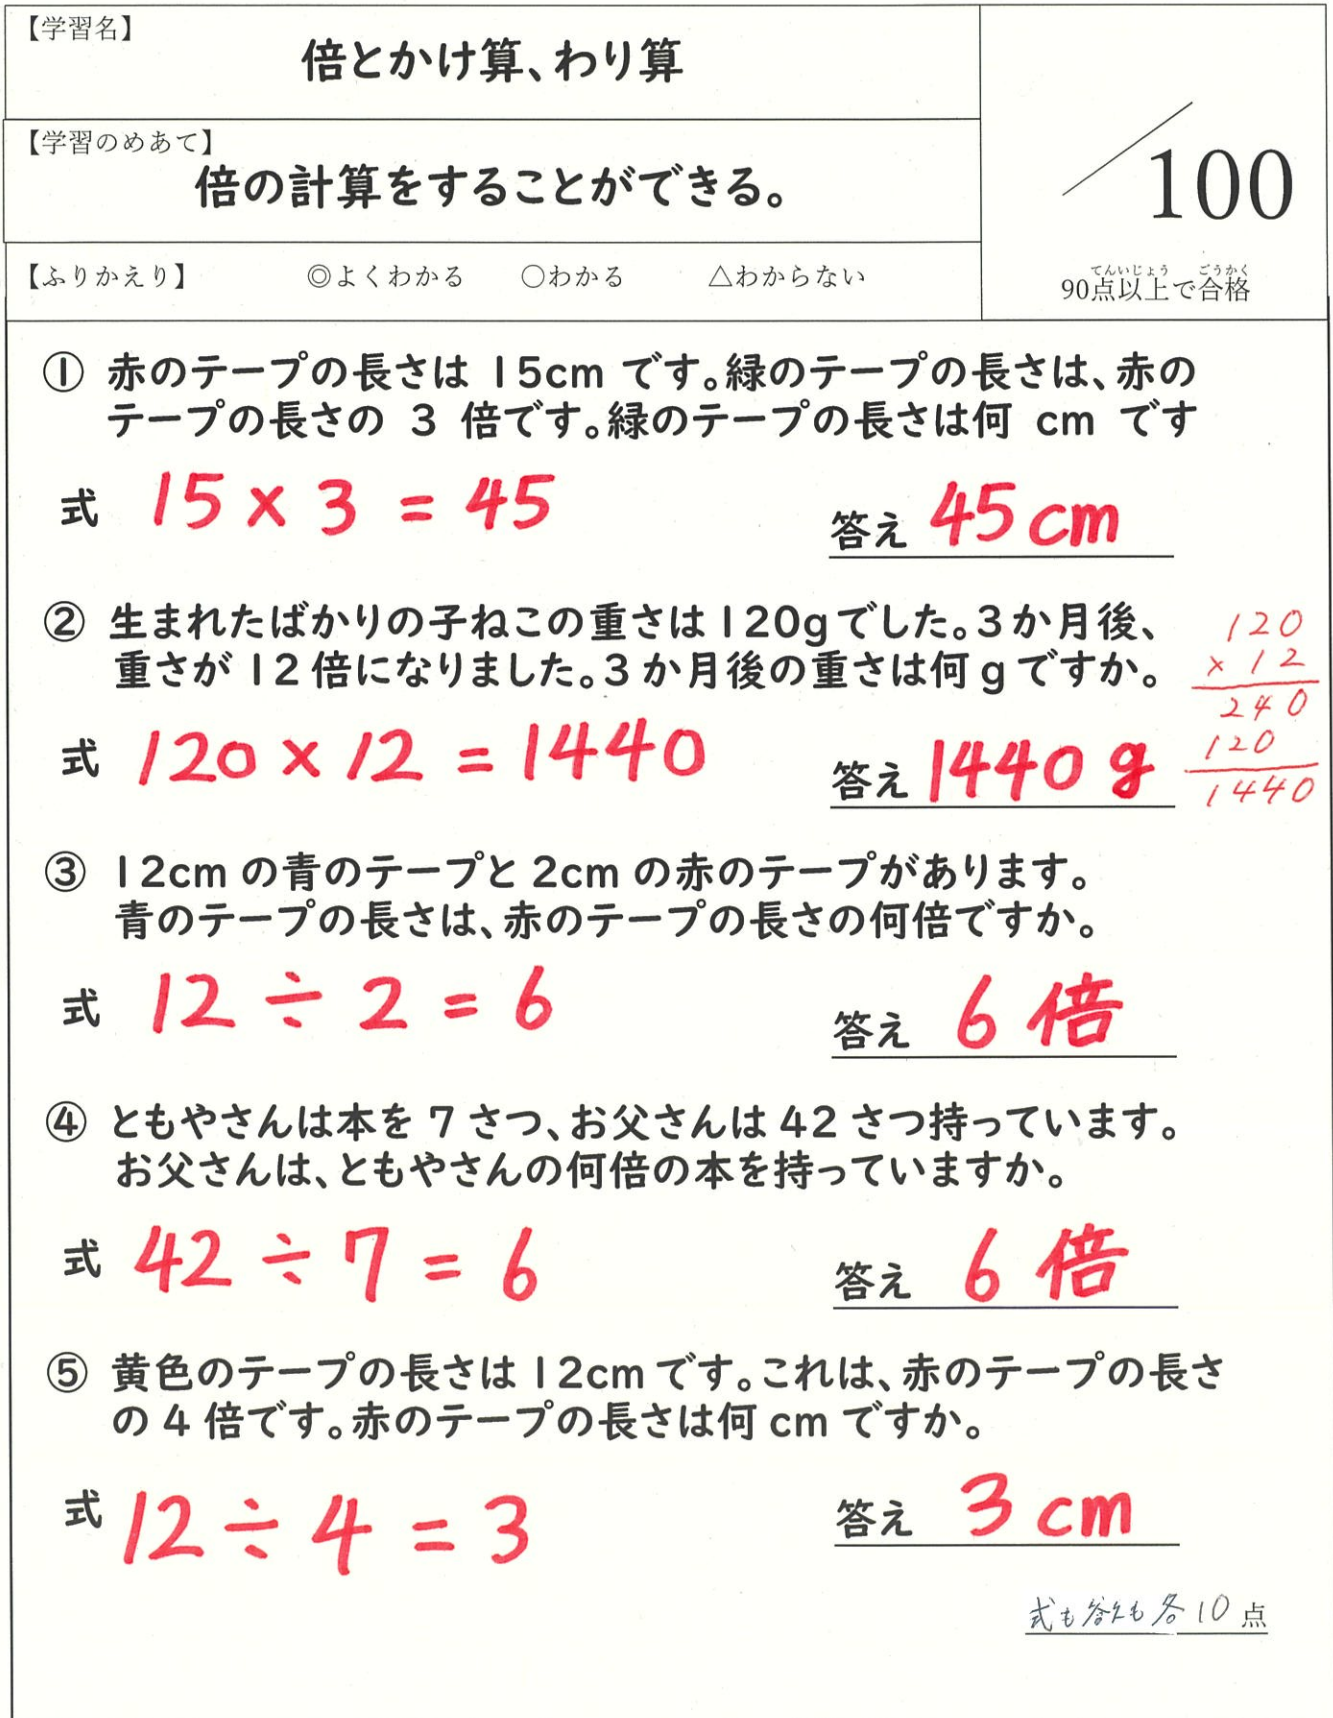 【学習名】
倍とかけ算、わり算
【学習のめあて】
倍の計算をすることができる。
【ふりかえり】 ◎よくわかる ○わかる △わからない
／100
てんいじょう ごうかく
90点以上で合格
① 赤のテープの長さは 15cm です。緑のテープの長さは、赤の
テープの長さの 3 倍です。緑のテープの長さは何 cm です
式 15 × 3 = 45
答え 45cm
② 生まれたばかりの子ねこの重さは120gでした。3か月後、
重さが12倍になりました。3か月後の重さは何gですか。
式 120 × 12 = 1440
答え 1440 g
120
× 12
240
120
1440
③ 12cm の青のテープと 2cm の赤のテープがあります。
青のテープの長さは、赤のテープの長さの何倍ですか。
式 12 ÷ 2 = 6
答え 6 倍
④ ともやさんは本を 7 さつ、お父さんは 42 さつ持っています。
お父さんは、ともやさんの何倍の本を持っていますか。
式 42 ÷ 7 = 6
答え 6 倍
⑤ 黄色のテープの長さは12cmです。これは、赤のテープの長さ
の 4 倍です。赤のテープの長さは何 cm ですか。
式 12 ÷ 4 = 3
答え 3 cm
式も答えも各10点